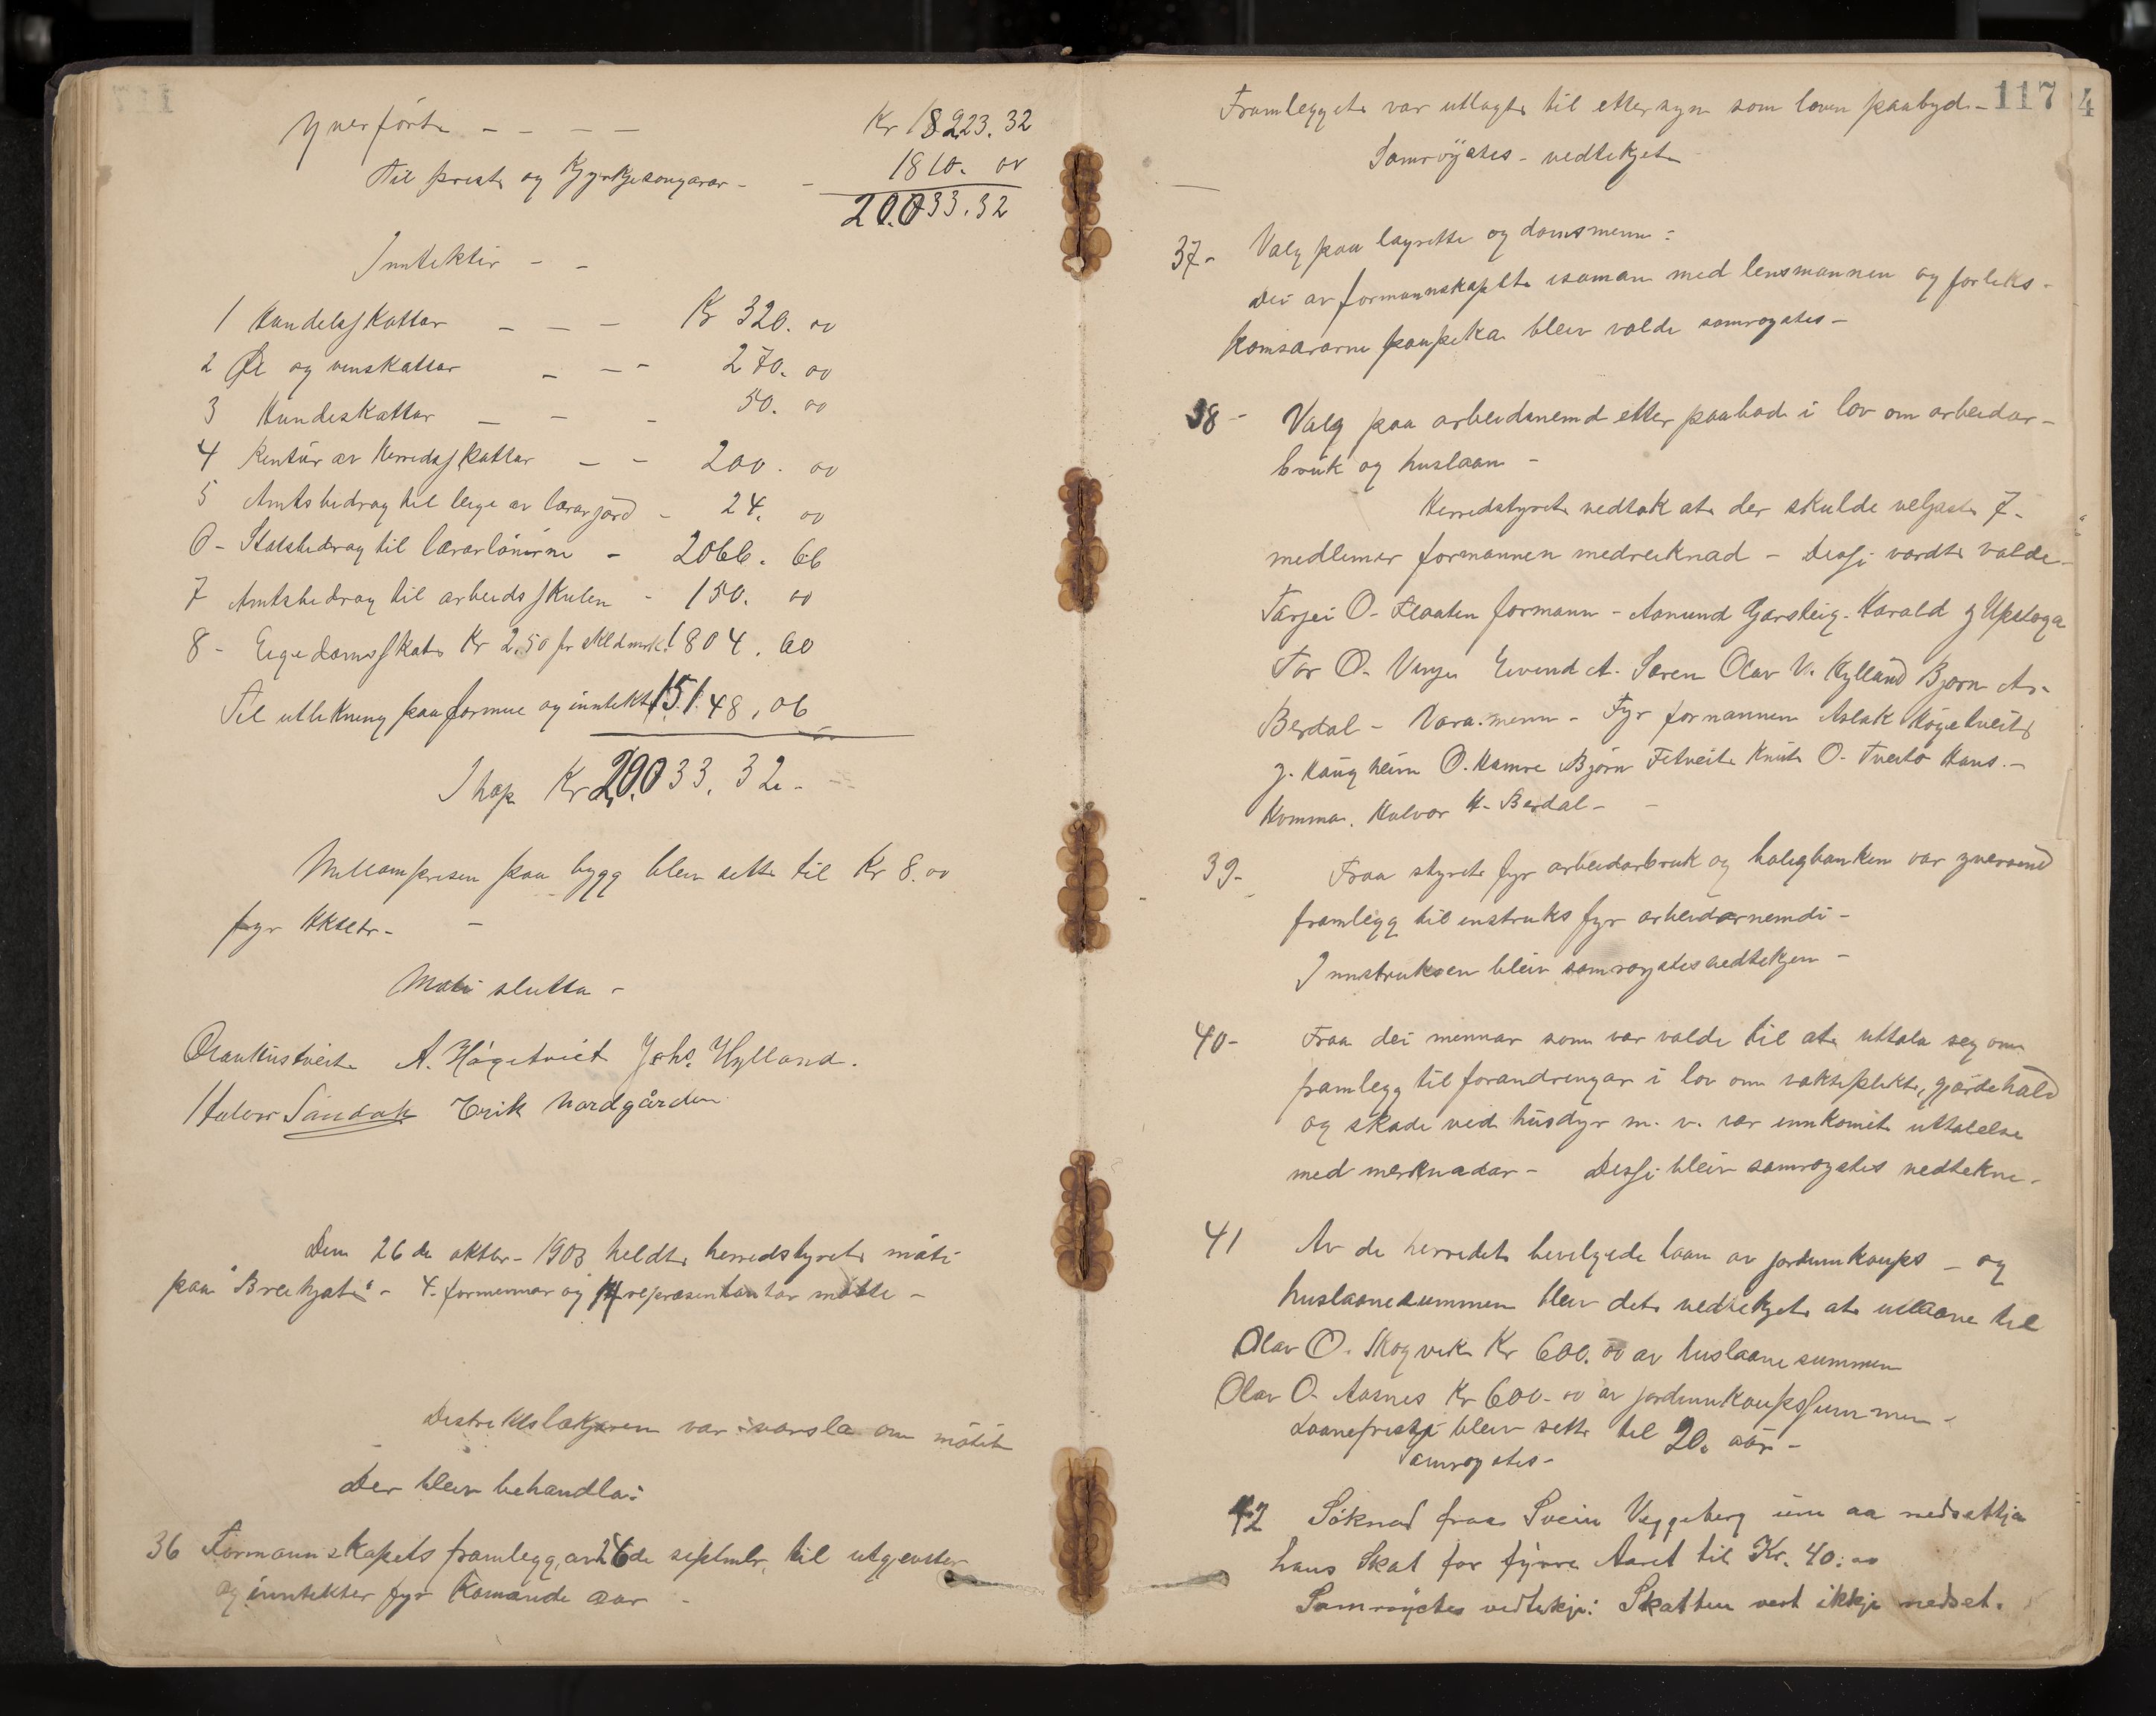 Yverførte - - - - Kr 18223.32
Til prest og Kyrkjesongarar - - 1810. 00
20.033.32
Inntekter - -
1 Handelsskattar - - - Kr 320. 00
2 Øl og vinskattar - - - 270. 00
3 Hundeskattar - - - 50. 00
4 Rentur av Herredsskattar - - 200. 00
5 Amtsbedrag til leige av lærarjord - 24. 00
6 - Statsbedrag til lærarlønirne - 2066. 66
7 Amtsbedrag til arbeidsskulen - 150. 00
8 - Eigedomsskat Kr 2,50 pr skldmrk. 1804. 60
Til utlikning paa formue og inntekt 15.148,06
I hop Kr 20.033.32 -
Millomprisen paa bygg blei sett til Kr 8.00
fyr Hktltr -
Møti slutta -
Olav Kustveit A. Høgetveit Johs. Hylland.
Halvor Sandok Eirik Nordgården
Den 26de oktbr - 1903 heldt herredstyret møti
paa "Breikjøti" - 4. formennar og 14 representantar møtte -
Distriktslækjaren var varsla om møtit
Der bleiv behandla:
36 Formannskapets framlegg, av 26de septmbr, til utgjevster
og inntekter fyr komande aar -
117 4
Framlegget var utlagt til ettersyn som loven paabyd -
Samrøystes - vedtekjet
37 - Valg paa lagrette og domsmenn:
Dei av formannskaplet isaman med lensmannen og forliks -
komsararne paapeka bleiv valde samrøystes -
38 - Valg paa arbeidsnemd etter paabod i lov om arbeidar -
bruk og huslaan -
Herredstyret vedtok at der skulde veljast 7 -
medlemer formannen medreiknad - Dessi vardt valde -
Tarjei O - Flaaten formann - Aanund Garsteig. Harald G Upsloga
Tor O. Vinje Eivind A. Søren Olav V. Hylland Bjørn A. -
Berdal - Vara.menn - Fyr formannen Aslak Høgetveit
G. Haugheim O. Hamre Bjørn Fetveit Knut O. Tveito Hans. -
Homma. Halvor H. Berdal -
39 - Fraa styret fyr arbeidarbruk og boligbanken var yversend
framlegg til instruks fyr arbeidarnemdi -
Innstruksen bleiv samrøystes vedtekjen -
40 - Fraa dei mennar som var valde til at uttala seg om
framlegg til forandringar i lov om vakteplikt, gjørdehald
og skade ved husdyr m. v. var innkomit uttalelse
med merknadar - Dessi bleiv samrøystes vedtekne -
41 Av de herredet bevilgede laan av jordinnkaups - og
huslaanesummen bleiv det vedtekjet at utlaane til
Olav O. Skogvik Kr 600. 00 av huslaanesummen
Olav O. Aasnes Kr 600 - 00 av jordinnkaupssummen -
Laanefristi bleiv sett til 20. aar -
Samrøystes -
42 Søknad fraa Svein Veggeberg um aa nedsettja
hans Skat for fyrre Aaret til Kr. 40.00
Samrøystes vedtekje: Skatten vert ikkje nedset.